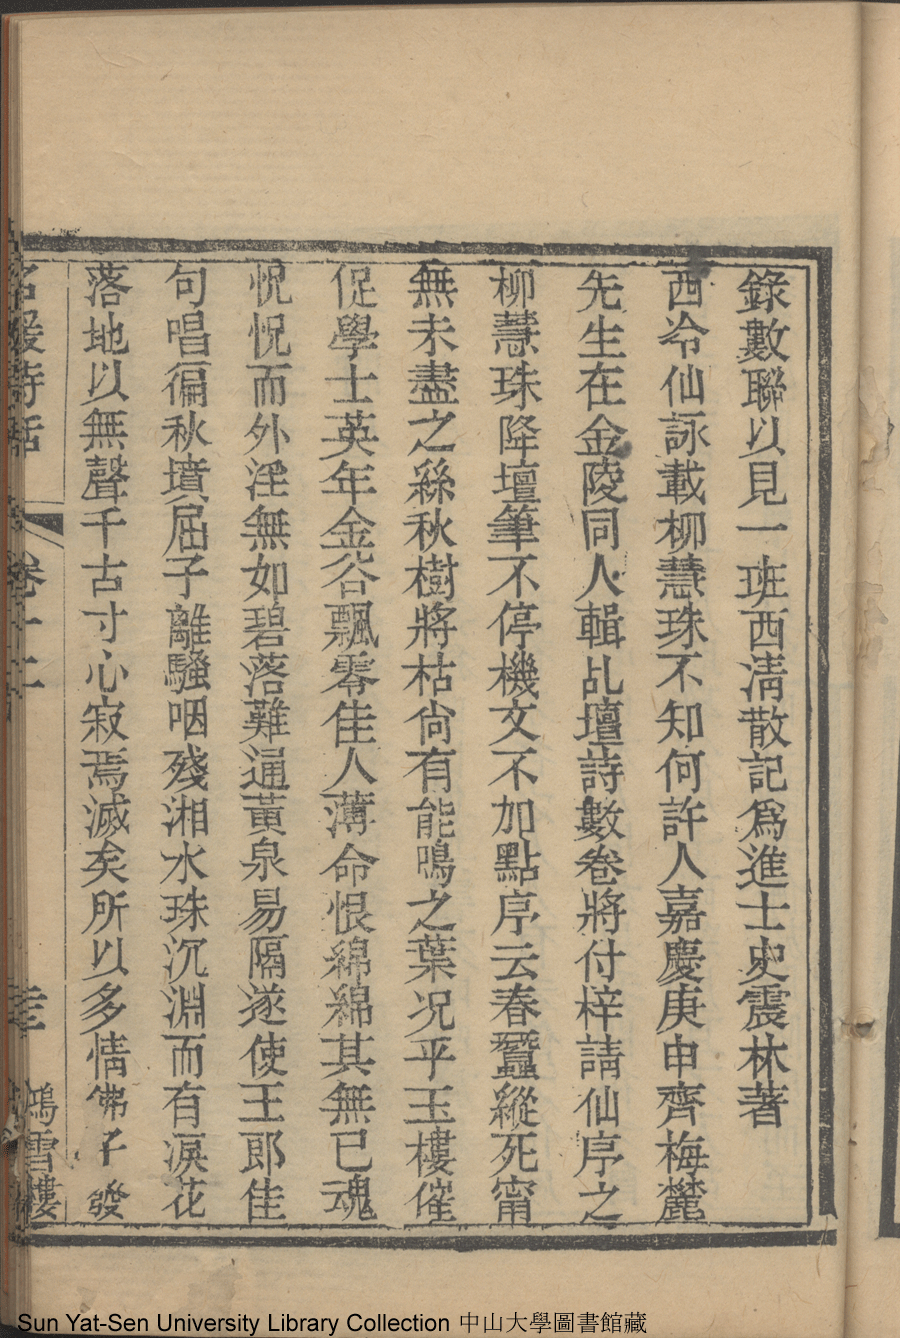 錄數聯以見一班西淸散記爲進士史震林著
西泠仙詠載柳慧珠不知何許人嘉慶庚申齊梅麓
先生在金陵同人輯乩壇詩數卷將付梓請仙序之
柳慧珠降壇筆不停機文不加點序云春蠶縱死甯
無未盡之絲秋樹將枯尙有能鳴之葉况乎玉樓催
促學士英年金谷飄零佳人薄命恨綿綿其無已魂
怳怳而外淫無如碧落難通黃泉易隔遂使王郎佳
句唱徧秋墳屈子離騷咽殘湘水珠沉淵而有淚花
落地以無聲千古寸心寂焉滅矣所以多情佛子發
名媛詩話 卷十二 鴻雪樓
Sun Yat-Sen University Library Collection 中山大學圖書館藏